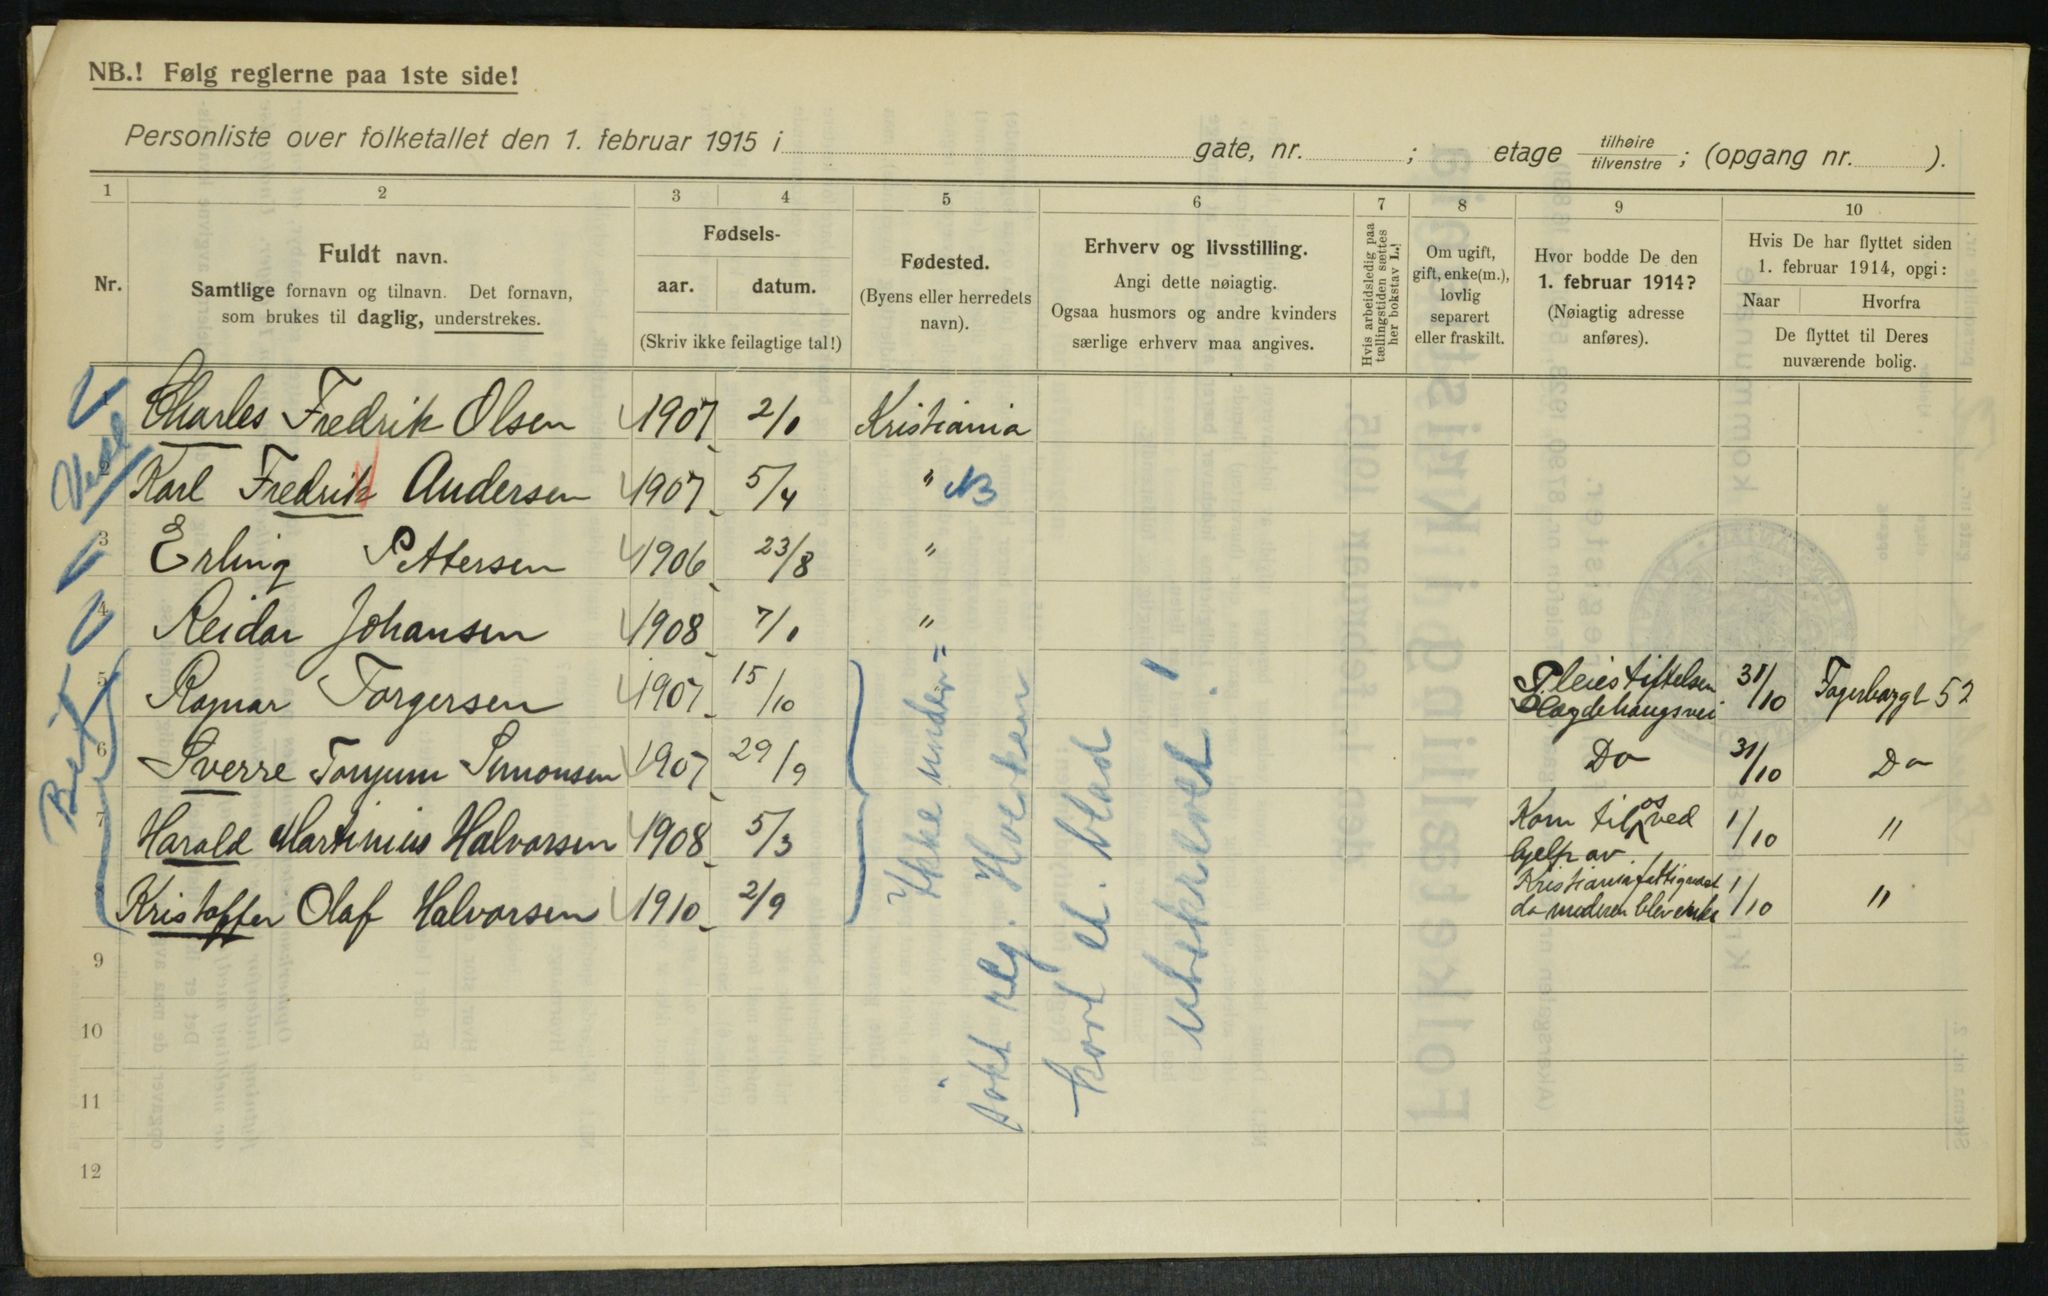 NB.! Følg reglerne paa 1ste side!
Personliste over folketallet den 1. februar 1915 i gate, nr. ; etage tilhøire tilvenstre ; (opgang nr. ).
1 2 3 4 5 6 7 8 9 10
Nr.
Fuldt navn.
Samtlige fornavn og tilnavn. Det fornavn,
som brukes til daglig, understrekes.
Fødsels-
aar. datum.
(Skriv ikke feilagtige tal!)
Fødested.
(Byens eller herredets
navn).
Erhverv og livsstilling.
Angi dette nøiagtig.
Ogsaa husmors og andre kvinders
særlige erhverv maa angives.
Hvis arbeidsledig paa
tællingstiden sættes
her bokstav L.!
Om ugift,
gift, enke(m.),
lovlig
separert
eller fraskilt.
Hvor bodde De den
1. februar 1914?
(Nøiagtig adresse
anføres).
Hvis De har flyttet siden
1. februar 1914, opgi:
Naar Hvorfra
De flyttet til Deres
nuværende bolig.
Charles Fredrik Olsen 1907 2/1 Kristiania
2 Karl Fredrik Andersen 1907 5/4 " NB
3 Erling Pettersen 1906 23/8 "
4 Reidar Johansen 1908 7/1 "
5 Ragnar Torgersen 1907 15/10 Pleiestiftelsen 31/10 Fagerborggt 52
6 Sverre Simonsen 1907 29/9 Do 31/10 Do
7 Harald Martinius Halvorsen 1908 5/3 Kom til os ved 1/10 "
hjelp av
Kristoffer Olaf Halvorsen 1910 2/9 Kristiania fattigvæsen 1/10 "
da moderen blev enke
9
10
11
12
Ikke under=
søkt reg. Hverken
kort el. blad
utskrevet!